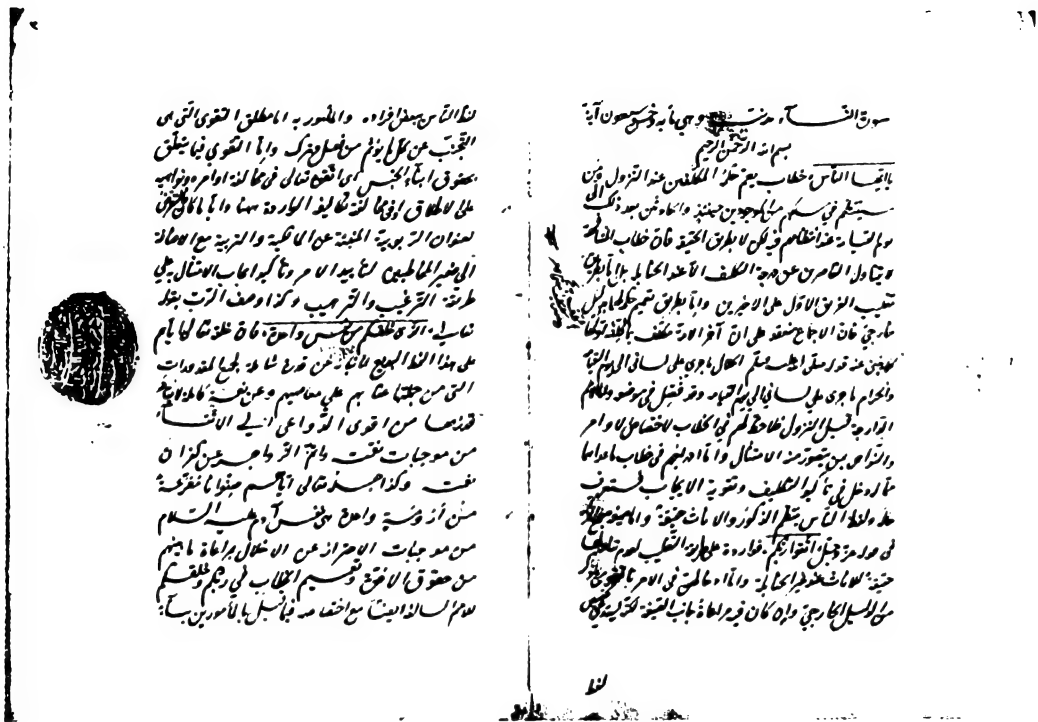 سورة النسآء مدنية وهي مائة وخمس وسبعون آية
بسم الله الرحمن الرحيم
يا ايها الناس، خطاب يعم حكمه المكلفين عند النزول ومن
سينتظم في سلكهم من الموجودين حينئذ والحادثين بعد ذلك الى
يوم القيامة عند انتظامهم فيه لكن لا بطريق الحقيقة فان خطاب المشافهة
لا يتناول القاصرين عن درجة التكليف الا عند الحنابلة بل اما بطريق
تغليب الفريق الاول على الاخيرين واما بطريق تعميم حكمه لهما بدليل
خارجي فان الاجماع منعقد على ان آخر الامة مكلف بما كلف به اولها
كما ينبئ عنه قوله صلى الله عليه وسلم الحلال ما جرى على لساني الى يوم القيامة
والحرام ما جرى على لساني الى يوم القيامة وقد فصل في موضعه واما الامم
الدارجة قبل النزول فلا حظ لهم في الخطاب لاختصاص الاوامر
والنواهي بمن يتصور منه الامتثال واما اندراجهم في خطاب ما عداهما
مما له دخل في تأكيد التكليف وتقوية الايجاب فستعرف
حاله ولفظ الناس ينتظم الذكور والاناث حقيقة واما صيغة
في قوله عز وجل، اتقوا ربكم، فواردة على طريقة التغليب لعدم تناولها
حقيقة للاناث عند غير الحنابلة واما ادخالهن في الامر بالتقوى بما ذكر
من الدليل الخارجي وان كان فيه مراعاة جانب الصيغة لكنه
لفظ
لفظ الناس ببعض افراده والمأمور به اما مطلق التقوى التي هي
التجنب عن كل ما يؤثم من فعل وترك واما التقوى فيما يتعلق
بحقوق ابناء الجنس اى اتقوه تعالى في مخالفة اوامره ونواهيه
على الاطلاق او في مخالفة تكاليفه الواردة ههنا وايا ما كان فالتعرض
لعنوان الربوبية المنبئة عن المالكية والتربية مع الاضافة
الى ضمير المخاطبين لتأييد الامر وتأكيد ايجاب الامتثال به على
طريقة الترغيب والترهيب وكذا وصف الرب بقوله
تعالى، الذي خلقكم من نفس واحدة، فان خلقه تعالى اياهم
على هذا النمط البديع لانبائه عن قدرة شاملة لجميع المقدورات
التي من جملتها عقابهم على معاصيهم وعن نعمة كاملة
من اقوى الدواعى الى الاتقآء
من موجبات نقمته واتم الزواجر عن كفران
نعمته وكذا جعله تعالى اياهم صنوانا مفرعة
من أرومة واحدة هى نفس آدم عليه السلام
من موجبات الاحتراز عن الاخلال بمراعاة ما بينهم
من حقوق الاخوة وتعميم الخطاب في ربكم وخلقكم
للامم السالفة ايضا مع اختصاصه فيما قبل بالمأمورين بنآء